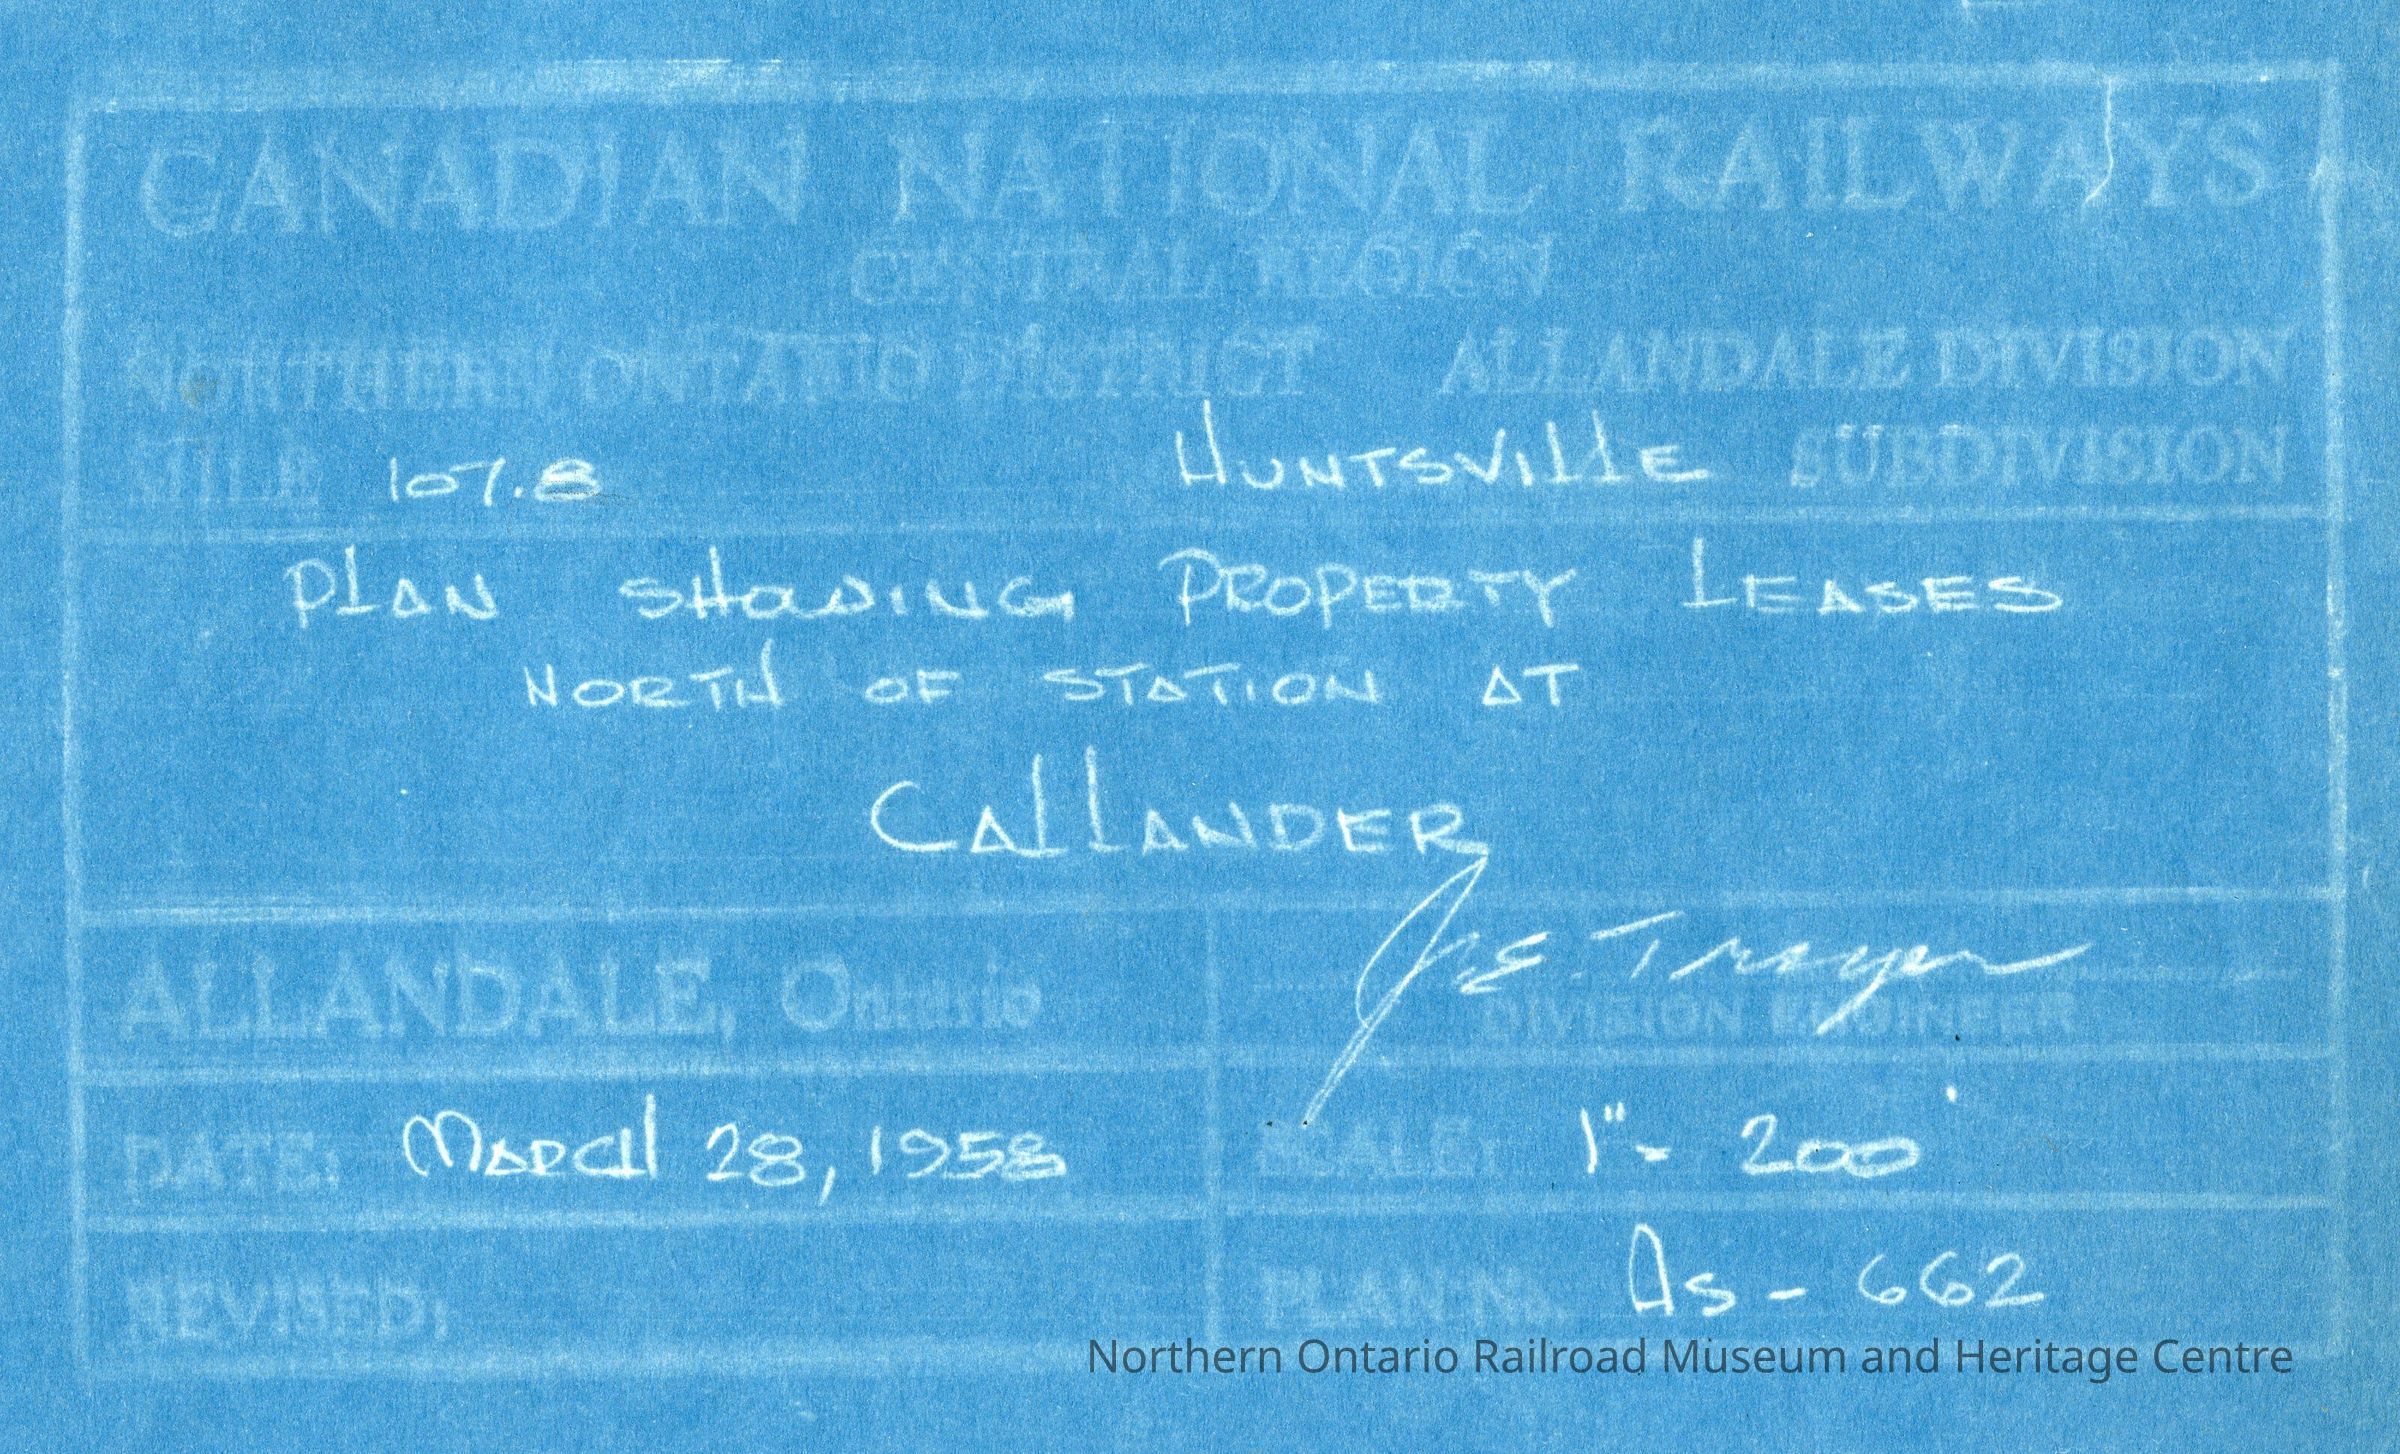 CANADIAN NATIONAL RAILWAYS
CENTRAL REGION
NORTHERN ONTARIO DISTRICT ALLANDALE DIVISION
MILE 107.8 HUNTSVILLE SUBDIVISION
PLAN SHOWING PROPERTY LEASES
NORTH OF STATION AT
CALLANDER
ALLANDALE, Ontario
DIVISION ENGINEER
DATE: MARCH 28, 1958
SCALE: 1" = 200'
REVISED:
PLAN No. AS - 662
Northern Ontario Railroad Museum and Heritage Centre